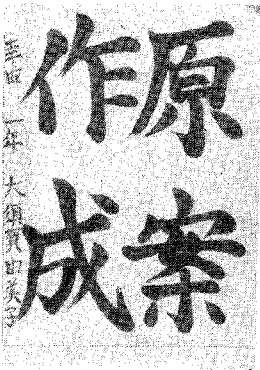 原案
作成
一年 大須賀由美子